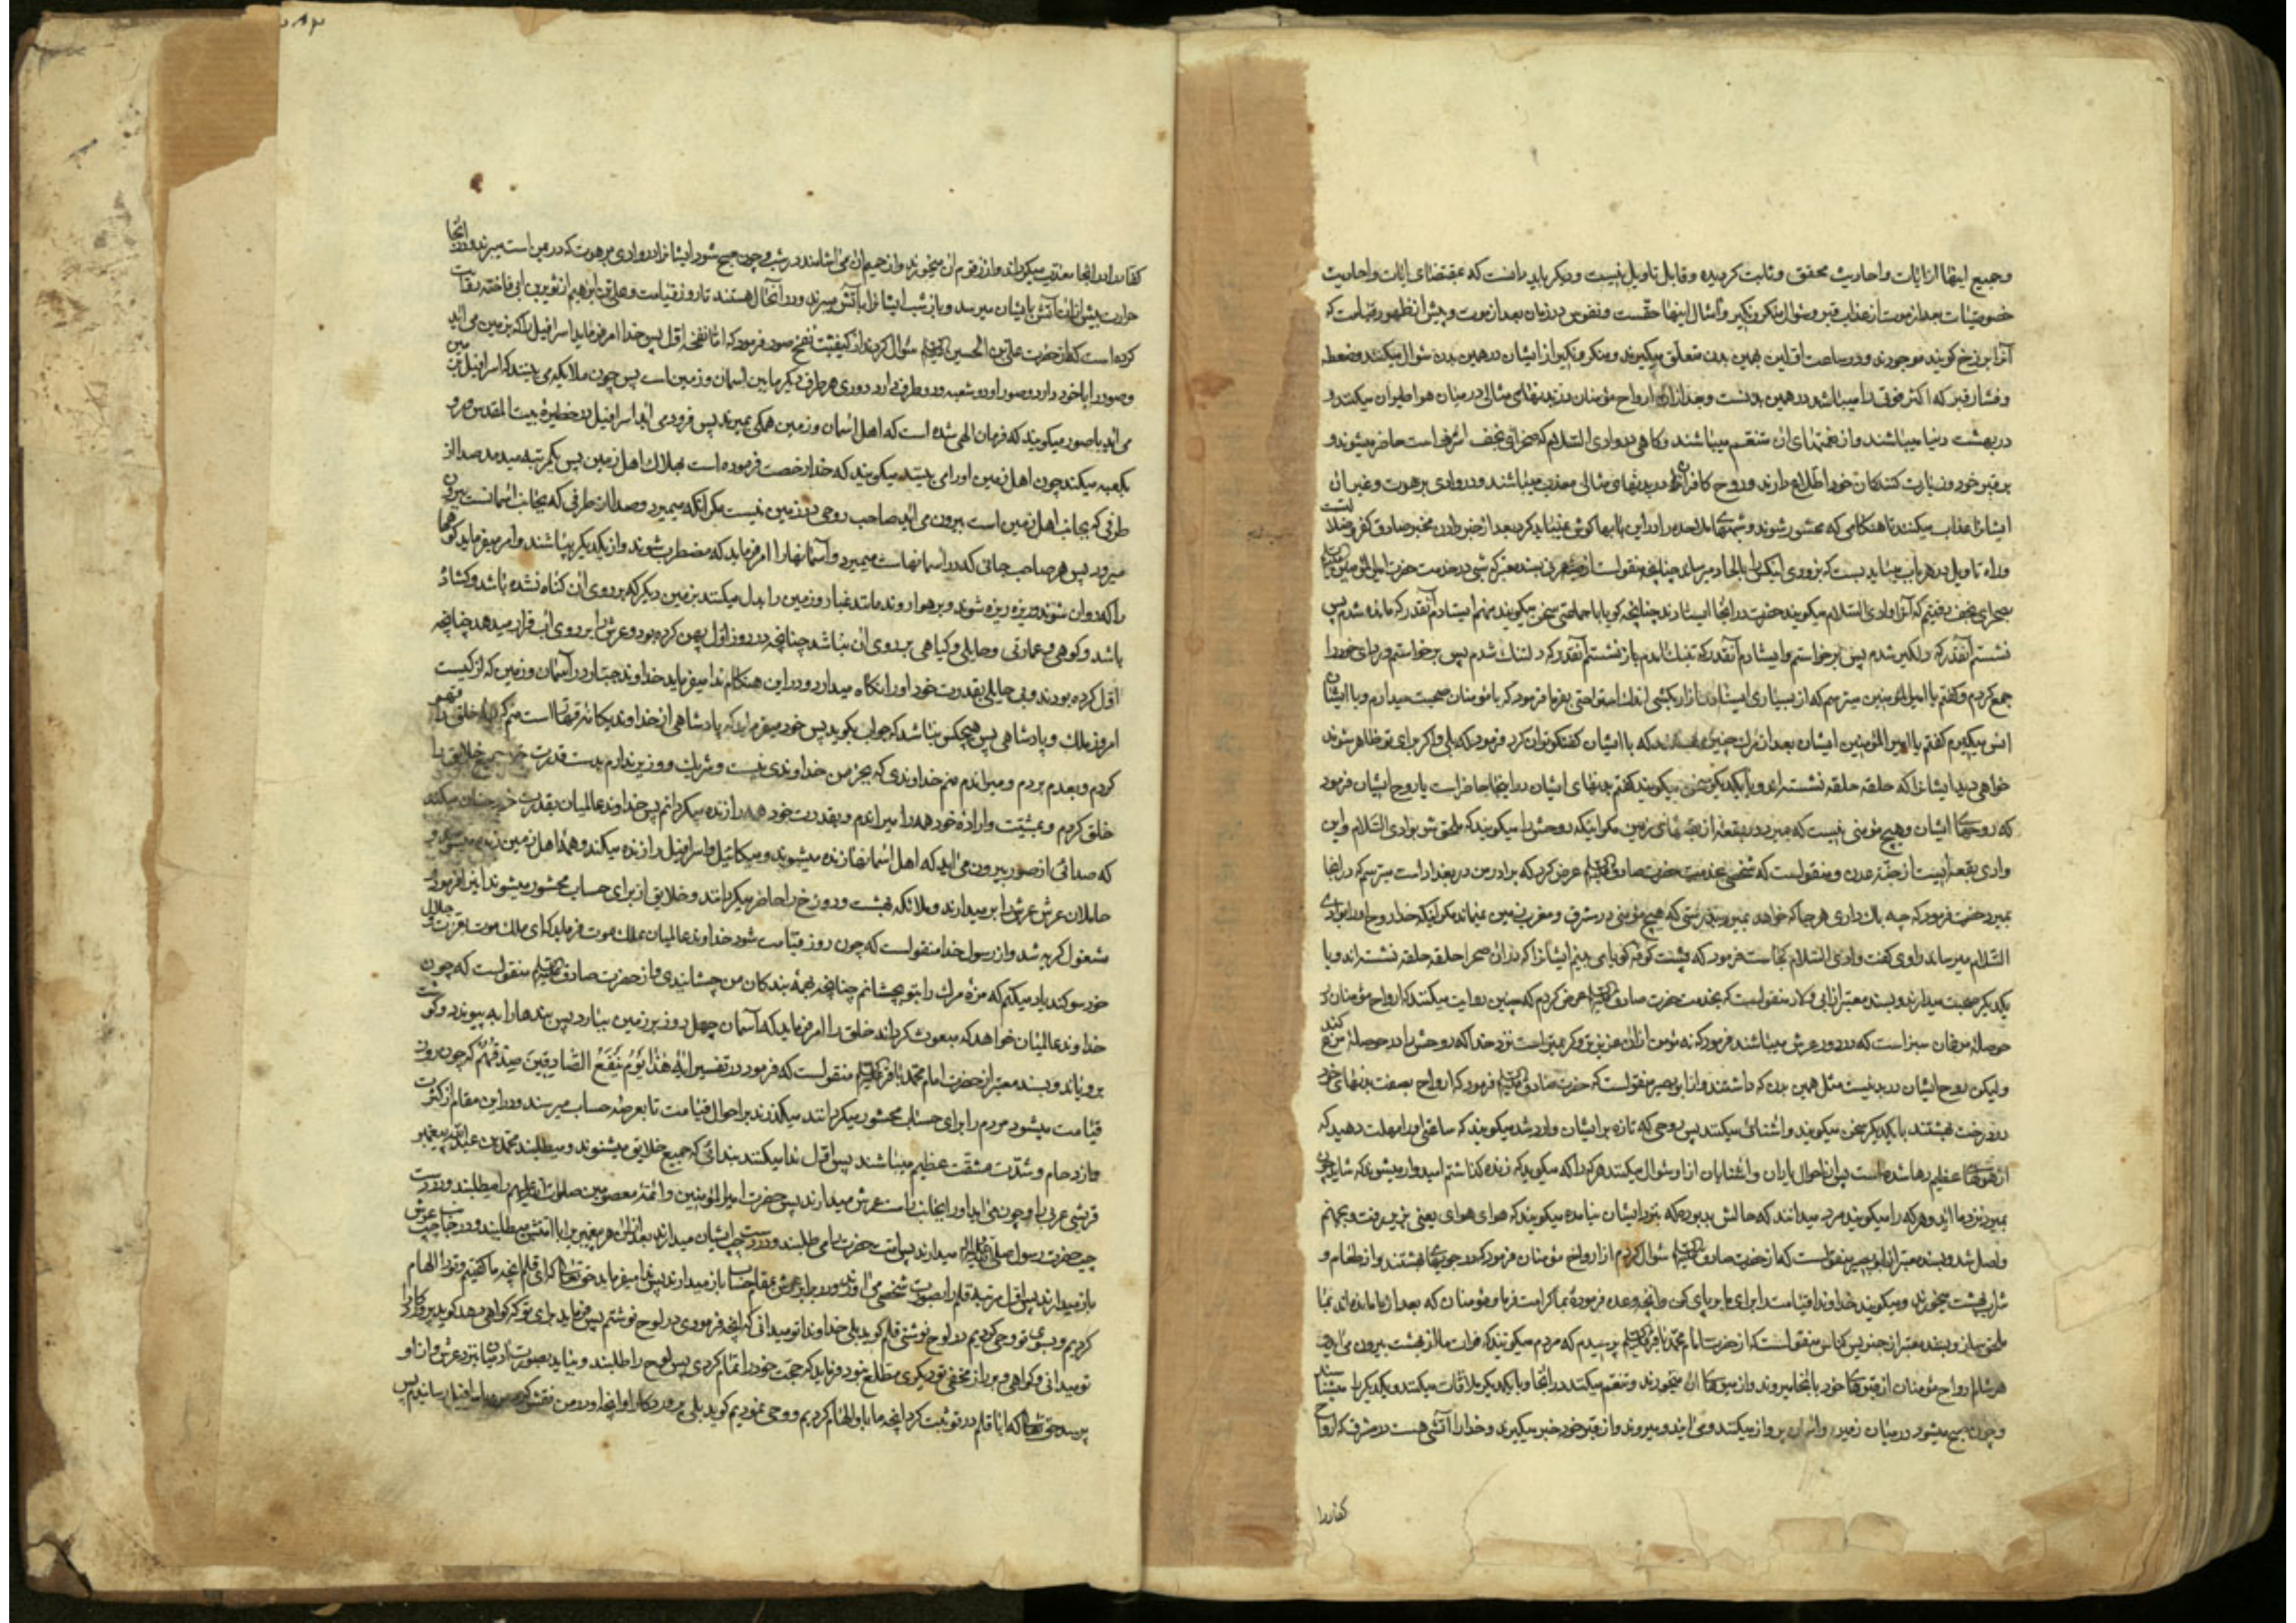 وجمیع اینها از ایات واحادیث محقق وثابت کردیده وقابل تاویل نیست ودیکر باید دانست که بمقتضای ایات واحادیث
خصوصیات بعد از موت از عذاب قبر وسئوال منکر ونکیر وامثال اینها حقست ونفوس در زمان بعد از موت وپیش از ظهور قیامت که
آنرا برزخ کویند موجودند ودر ساعت اول باین همین بدن متعلق میکیرند ومنکر ونکیر از ایشان در همین بدن سئوال میکنند وضغطه
وفشار قبر که اکثر خلق را میباشد در همین بدنست وبعد از ان ارواح مؤمنان در بدنهای مثالی در میان هوا طیران میکنند و
در بهشت دنیا میباشند واز نعمتهای ان متنعم میباشند وکاهی در وادی السلام که صحرای نجف اشرف است حاضر میشوند و
بر قبر خود وزیارت کنندکان خود اطلاع دارند وروح کافران در بدنهای مثالی معذب میباشند ودر وادی برهوت وغیر ان
ایشانرا عذاب میکنند تا هنکامی که محشور شوند وشبهای ملاحده را در این بابها کوش نمیباید کرد بعد از خبر دادن مخبر صادق کفر وضلالتست
وراه تاویل در هر باب نمیباید بست که بزودی این کس را بالحاد میرساند چنانچه منقولست از حبه عرنی بسند معتبر که شبی در خدمت حضرت امیرالمؤمنین
بصحرای نجف رفتیم که آنرا وادی السلام میکویند حضرت در انجا ایستادند چنانچه کویا با جماعتی سخن میکویند منهم ایستادم آنقدر که مانده شدم پس
نشستم آنقدر که دلکیر شدم پس برخواستم وایستادم آنقدر که تنک امدم باز نشستم آنقدر که دلتنک شدم پس برخواستم وردای خود را
جمع کردم وکفتم یا امیرالمؤمنین میترسم که از بسیاری ایستادن ازار بکشی اندک استراحتی بفرما فرمود که با مؤمنان صحبت میدارم وبا ایشان
انس میکیرم کفتم یا امیرالمؤمنین ایشان بعد از مرک چنین هستند که با ایشان کفتکو توان کرد فرمود که بلی واکر برای تو ظاهر شوند
خواهی دید ایشانرا که حلقه حلقه نشسته اند وبا یکدیکر سخن میکویند کفتم بدنهای ایشان در اینجا حاضر است یا روح ایشان فرمود
که روحهای ایشان وهیچ مؤمنی نیست که میرد در بقعه از بقعهای زمین مکر اینکه روحش را میکویند که ملحق شو بوادی السلام واین
وادی بقعه ایست از جنت عدن ومنقولست که شخصی بخدمت حضرت صادق علیه السلام عرض کرد که برادر من در بغداد است میترسم که در انجا
بمیرد حضرت فرمود که چه باک داری هر جا که خواهد بمیرد بدرستی که هیچ مؤمنی در مشرق ومغرب زمین نمیماند مکر اینکه خدا روح او را بوادی
السلام میرساند راوی کفت وادی السلام کجاست فرمود که پشت کوفه کویا می بینم ایشانرا که در ان صحرا حلقه حلقه نشسته اند وبا
یکدیکر صحبت میدارند وبسند معتبر از ابی ولاد منقولست که بخدمت حضرت صادق علیه السلام عرض کردم که سنیان روایت میکنند که ارواح مؤمنان در
حوصله مرغان سبز است که در دور عرش میباشند فرمود که نه مؤمن از ان عزیزتر وکرامیتر است نزد خدا که روحش را در حوصله مرغ کند
ولیکن روح ایشان در بدنیست مثل همین بدن که داشتند واز ابو بصیر منقولست که حضرت صادق علیه السلام فرمود که ارواح بصفت بدنهای خود
در درخت بهشتند با یکدیکر سخن میکویند واشنائی میکنند پس روحی که تازه بر ایشان وارد شد میکویند که ساعتی او را مهلت دهید که
از هولهای عظیم رها شده است پس از احوال یاران واشنایان از او سئوال میکنند هر کرا که میکوید که زنده کذاشتم امیدوار میشوند که شاید چون
بمیرد نزد ما اید وهر که را میکوید مرد میدانند که حالش بد بوده که بنزد ایشان نیامده میکویند که هوای هوای یعنی بزیر رفت وبجهنم
واصل شد وبسند معتبر از ابی بصیر منقولست که از حضرت صادق علیه السلام سئوال کردم از ارواح مؤمنان فرمود که در حجرهای بهشتند از طعام و
شراب بهشت میخورند ومیکویند خداوندا قیامت را برای ما برپای کن وانچه وعده فرموده بما کرامت فرما ومؤمنان که بعد از ما مانده اند بما
ملحق ساز وبسند معتبر از ضریس کناسی منقولست که از حضرت امام محمد باقر علیه السلام پرسیدم که مردم میکویند که فرات ما از بهشت بیرون می اید
هر شام ارواح مؤمنان از قبرهای خود بانجا میروند واز میوهای ان میخورند وتنعم میکنند در انجا وبا یکدیکر ملاقات میکنند ویکدیکر را میشناسند
وچون صبح میشود در میان زمین واسمان پرواز میکنند ومی ایند ومیروند واز قبر خود خبر میکیرند وخدا را آتشی هست در مشرق که ارواح
کفار را
کفار را در انجا معذب میکرداند واز زقوم ان میخورند واز حمیم ان می اشامند در شب وچون صبح شود ایشانرا در وادی برهوت که در یمن است میبرند ودر انجا
حرارت بیش از ان آتش بایشان میرسد وباز شب ایشانرا بآتش میبرند ودر انحال هستند تا روز قیامت وعلی بن ابرهیم از ثویر بن ابی فاخته روایت
کرده است که از حضرت علی بن الحسین علیه السلام سئوال کردند از کیفیت نفخ صور فرمود که اما نفخه اول پس خدا امر فرماید اسرافیل را که بزمین می اید
وصور را با خود دارد وصور او دو شعبه ودو طرف دارد دوری هر طرف دیکر مابین اسمان وزمین است پس چون ملایکه می بینند که اسرافیل بزمین
می اید با صور میکویند که فرمان الهی شده است که اهل اسمان وزمین همکی بمیرند پس فرود می اید اسرافیل در حظیره بیت المقدس ورو
بکعبه میکند چون اهل زمین او را می بینند میکویند که خدا رخصت فرموده است بهلاک اهل زمین پس یکمرتبه میدمد صدا از
طرفی که بجانب اهل زمین است بیرون می اید صاحب روحی در زمین نیست مکر انکه میمیرد وصدا از طرفی که بجانب اسمانست بیرون
میرود پس هر صاحب حیاتی که در اسمانهاست میمیرد وآسمانهارا امر فرماید که مضطرب شوند واز یکدیکر بپاشند وامر میفرماید کوهها
را که روان شوند وریزه ریزه شوند وبر هوا روند مانند غبار وزمین را بدل میکنند بزمین دیکر که بر روی ان کناه نشده باشد وکشاده
باشد وکوهی وعمارتی وحایلی وکیاهی بر روی ان نباشد چنانچه در روز اول پهن کرده بود وعرش را بر روی آب قرار میدهد چنانچه
اول کرده بودند وبی حایلی بقدرت خود او را نکاه میدارد ودر این هنکام ندا میفرماید خداوند جبار در آسمان وزمین که از کیست
امروز ملک وپادشاهی پس هیچکس نباشد که جواب بکوید پس خود میفرماید که پادشاهی از خداوند یکانه قهار است منم که همه خلق را قهر
کردم وبعدم بردم ومیراندم منم خداوندی که بجز من خداوندی نیست وشریک ووزیر ندارم بدست قدرت خود خلایق را
خلق کردم وبمشیت واراده خود همه را میراندم وبقدرت خود همه را زنده میکردانم پس خداوند عالمیان بقدرت خود چنان میکند
که صدائی از صور بیرون می اید که اهل اسمانها زنده میشوند ومیکائیل واسرافیل را زنده میکند وهمه اهل زمین زنده میشوند و
حاملان عرش عرش را بر میدارند وملائکه بهشت ودوزخ را حاضر میکردانند وخلایق از برای حساب محشور میشوند اینرا فرمود
مشغول کریه شد واز رسول خدا منقولست که چون روز قیامت شود خداوند عالمیان بملک موت فرماید که ای ملک موت بعزت وجلال
خود سوکند یاد میکنم که مزه مرک را بتو بچشانم چنانچه بهمه بندکان من چشانیدی واز حضرت صادق علیه السلام منقولست که چون
خداوند عالمیان خواهد که مبعوث کرداند خلق را امر فرماید که آسمان چهل روز بر زمین ببارد پس بندها را بهم پیوندد وکوشت
برویاند وبسند معتبر از حضرت امام محمد باقر علیه السلام منقولست که فرمود در تفسیر ایه هٰذا یَوْمُ یَنْفَعُ الصَّادِقِینَ صِدْقُهُمْ که چون روز
قیامت میشود مردم را برای حساب محشور میکردانند میکذرند بر احوال قیامت تا بعرصه حساب میرسند ودر این مقام از کثرت
وازدحام وشدت مشقت عظیم میباشند پس اول ندا میکنند بندائی که جمیع خلایق میشنوند ومیطلبند محمد بن عبدالله پیغمبر
قریشی عربی را وچون می اید او را بجانب راست عرش میدارند پس حضرت امیرالمؤمنین وائمه معصومین صلوات الله علیهم را میطلبند ودر دست
چپ حضرت رسول صلی الله علیه واله میدارند پس امت حضرت را می طلبند ودر دست چپ ایشان میدارند بعد از ان هر پیغمبریرا با امتش میطلبند ودر جانب چپ عرش
باز میدارند پس اول مرتبه قلم را بصورت شخصی می اورند ودر برابر عرش بمقام حساب باز میدارند پس ندا میفرماید حق تعالی که ای قلم انچه ما کفتیم وتو را الهام
کردیم وبسوی تو وحی کردیم در لوح نوشتی قلم کوید بلی خداوندا تو میدانی که انچه فرمودی در لوح نوشتم پس فرماید برای تو که کواهی میدهد کوید پروردکارا
تو میدانی وکواهی وبر راز مخفی تو دیکری مطلع نبود فرماید که حجت خود را تمام کردی پس لوح را طلبند وبیاید بصورت ادمیان تا نزد عرش واز او
پرسد حق تعالی که ایا قلم در تو ثبت کرد انچه ما باو الهام کردیم ووحی نمودیم کوید بلی پروردکارا وانچه او در من نقش کرد من باسرافیل رسانیدم پس